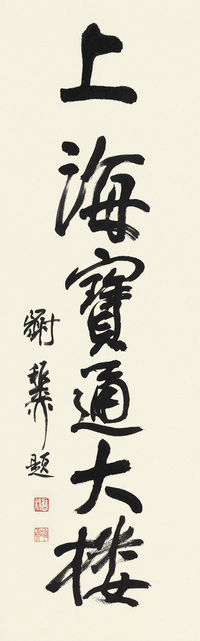 上海寶通大楼
謝稚柳題